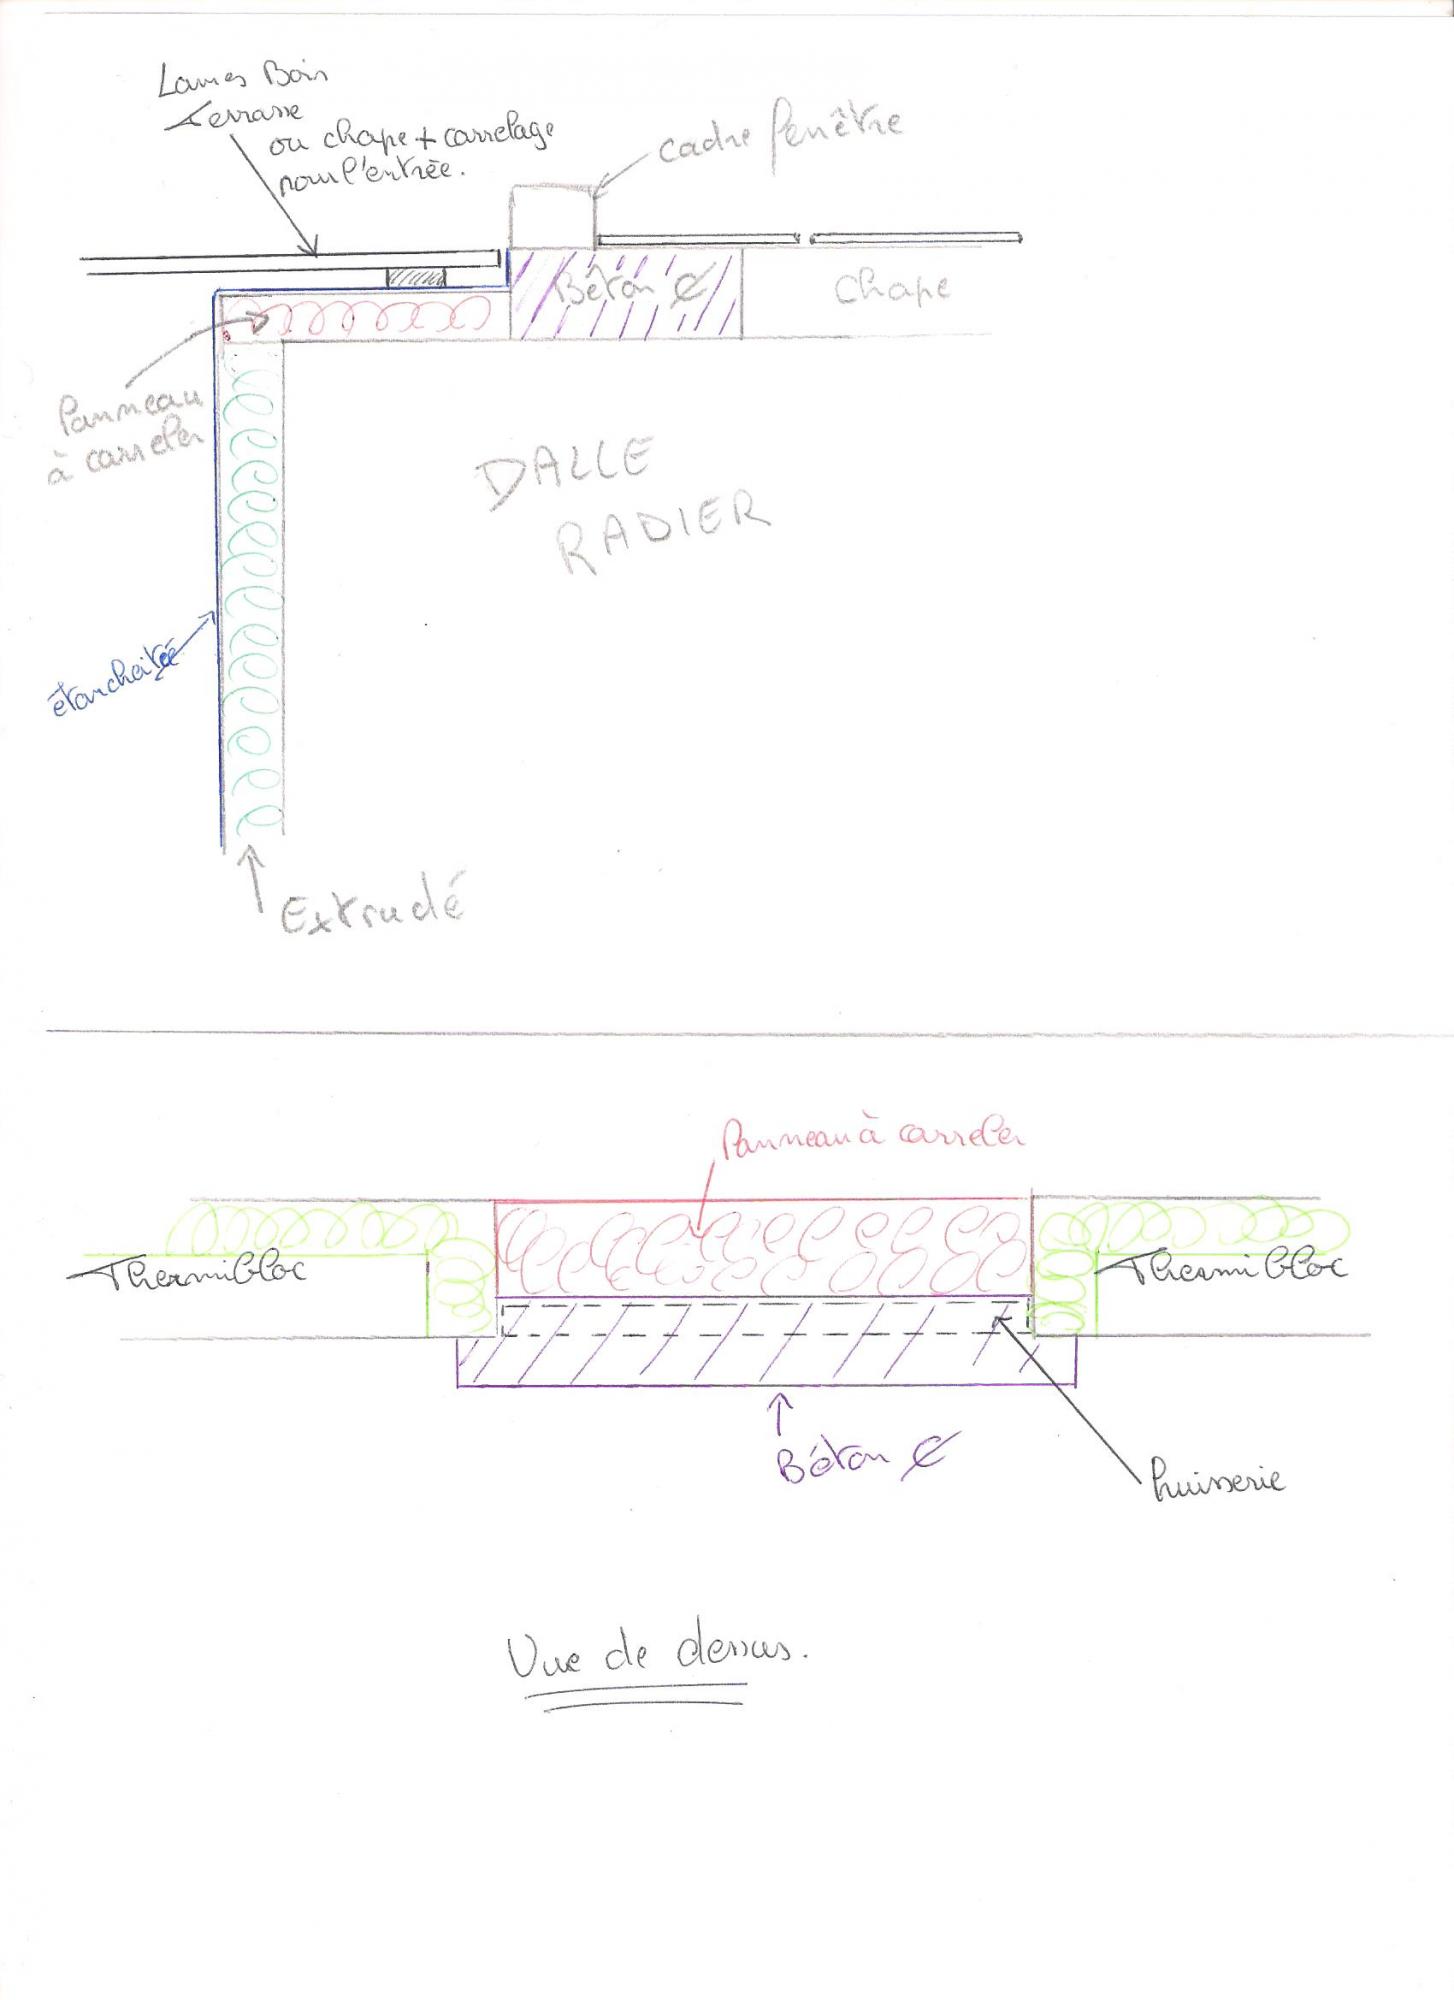 Lames Bois
Terrasse
ou chape + carrelage
pour l'entrée.
cadre fenêtre
Béton ₡
chape
Panneau
à carreler
DALLE
RADIER
étanchéité
Extrudé
Panneau à carreler
Thermibloc
Thermibloc
Béton ₡
huisserie
Vue de dessus.